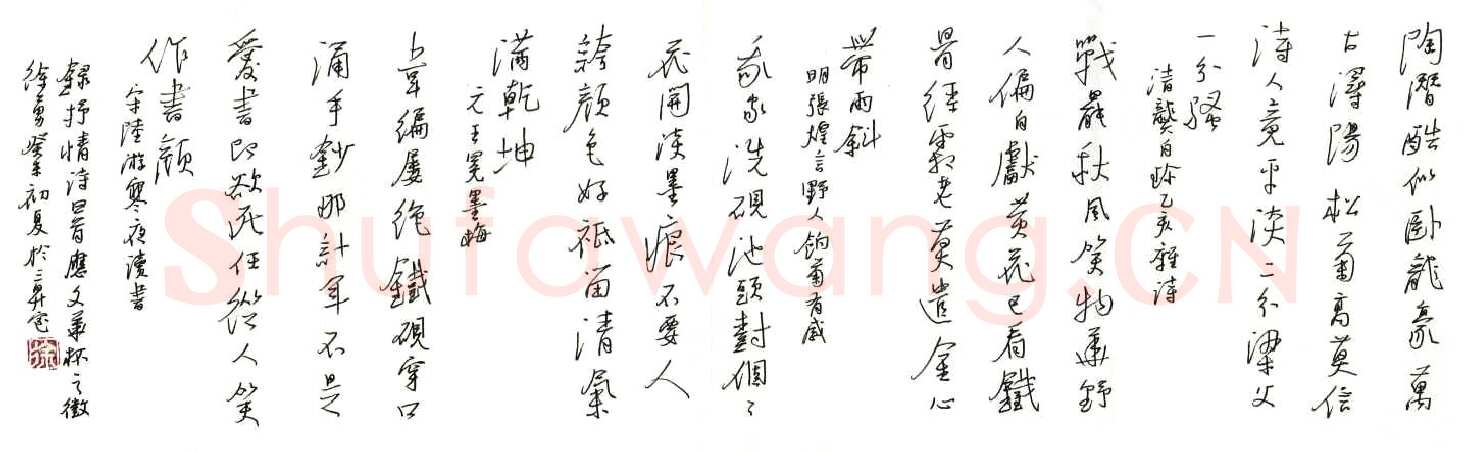 陶潛酷似臥龍豪萬
古潯陽松菊高莫信
詩人竟平淡二分梁父
一分騷
清龔自珍己亥雜詩
戰罷秋風笑物華野
人偏自獻黃花已看鐵
骨經霜老莫遣金心
帶雨斜
明張煌言野人餉菊有感
我家洗硯池頭樹個々
花開淡墨痕不要人
誇顏色好祗留清氣
滿乾坤
元王冕墨梅
韋編屢絕鐵硯穿口
誦手鈔那計年不是
愛書即欲死任從人笑
作書顛
宋陸游寒夜讀書
錄抒情詩四首應文華杯之徵
徐勇癸未初夏於三昇室
徐
Shufawang.CN